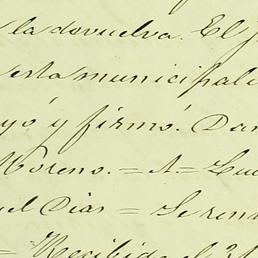 la dovuelva. El J
esta municipali
yó y firmó. Dan
Moreno. = A = Lu
uel Dias = Se rem
= Recibido el 31